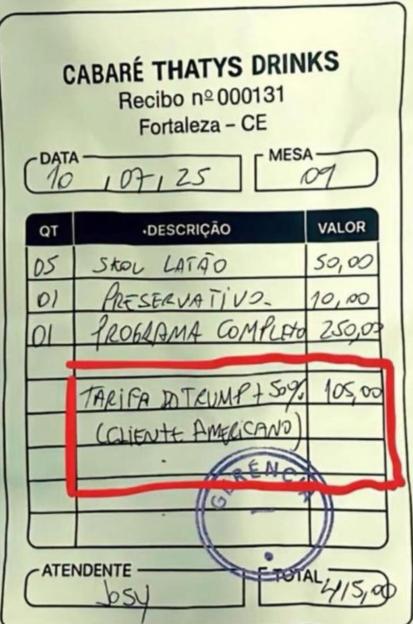 CABARÉ THATYS DRINKS
Recibo nº 000131
Fortaleza – CE
DATA MESA
10 / 07 / 25 09
QT DESCRIÇÃO VALOR
05 SKOL LATÃO 50,00
01 PRESERVATIVO 10,00
01 PROGRAMA COMPLETO 250,00
TARIFA DO TRUMP + 50% 105,00
(CLIENTE AMERICANO)
GERÊNCIA
ATENDENTE TOTAL
Josy 415,00